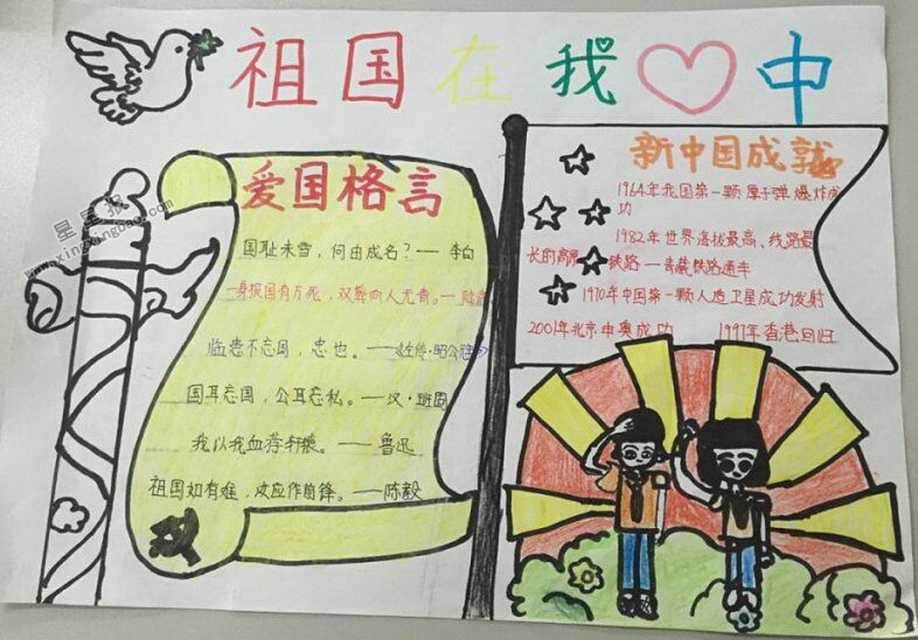 祖国在我中
爱国格言
国耻未雪，何由成名？——李白
一身报国有万死，双鬓向人无青。——陆游
临患不忘国，忠也。——《左传·昭公元年》
国耳忘国，公耳忘私。——汉·班固
我以我血荐轩辕。——鲁迅
祖国如有难，应作前锋。——陈毅
新中国成就
1964年我国第一颗原子弹爆炸成
功
1982年世界海拔最高、线路最
长的高原铁路—青藏铁路通车
1970年中国第一颗人造卫星成功发射
2001年北京申奥成功 1997年香港回归
星星报
www.xingxingbao.com